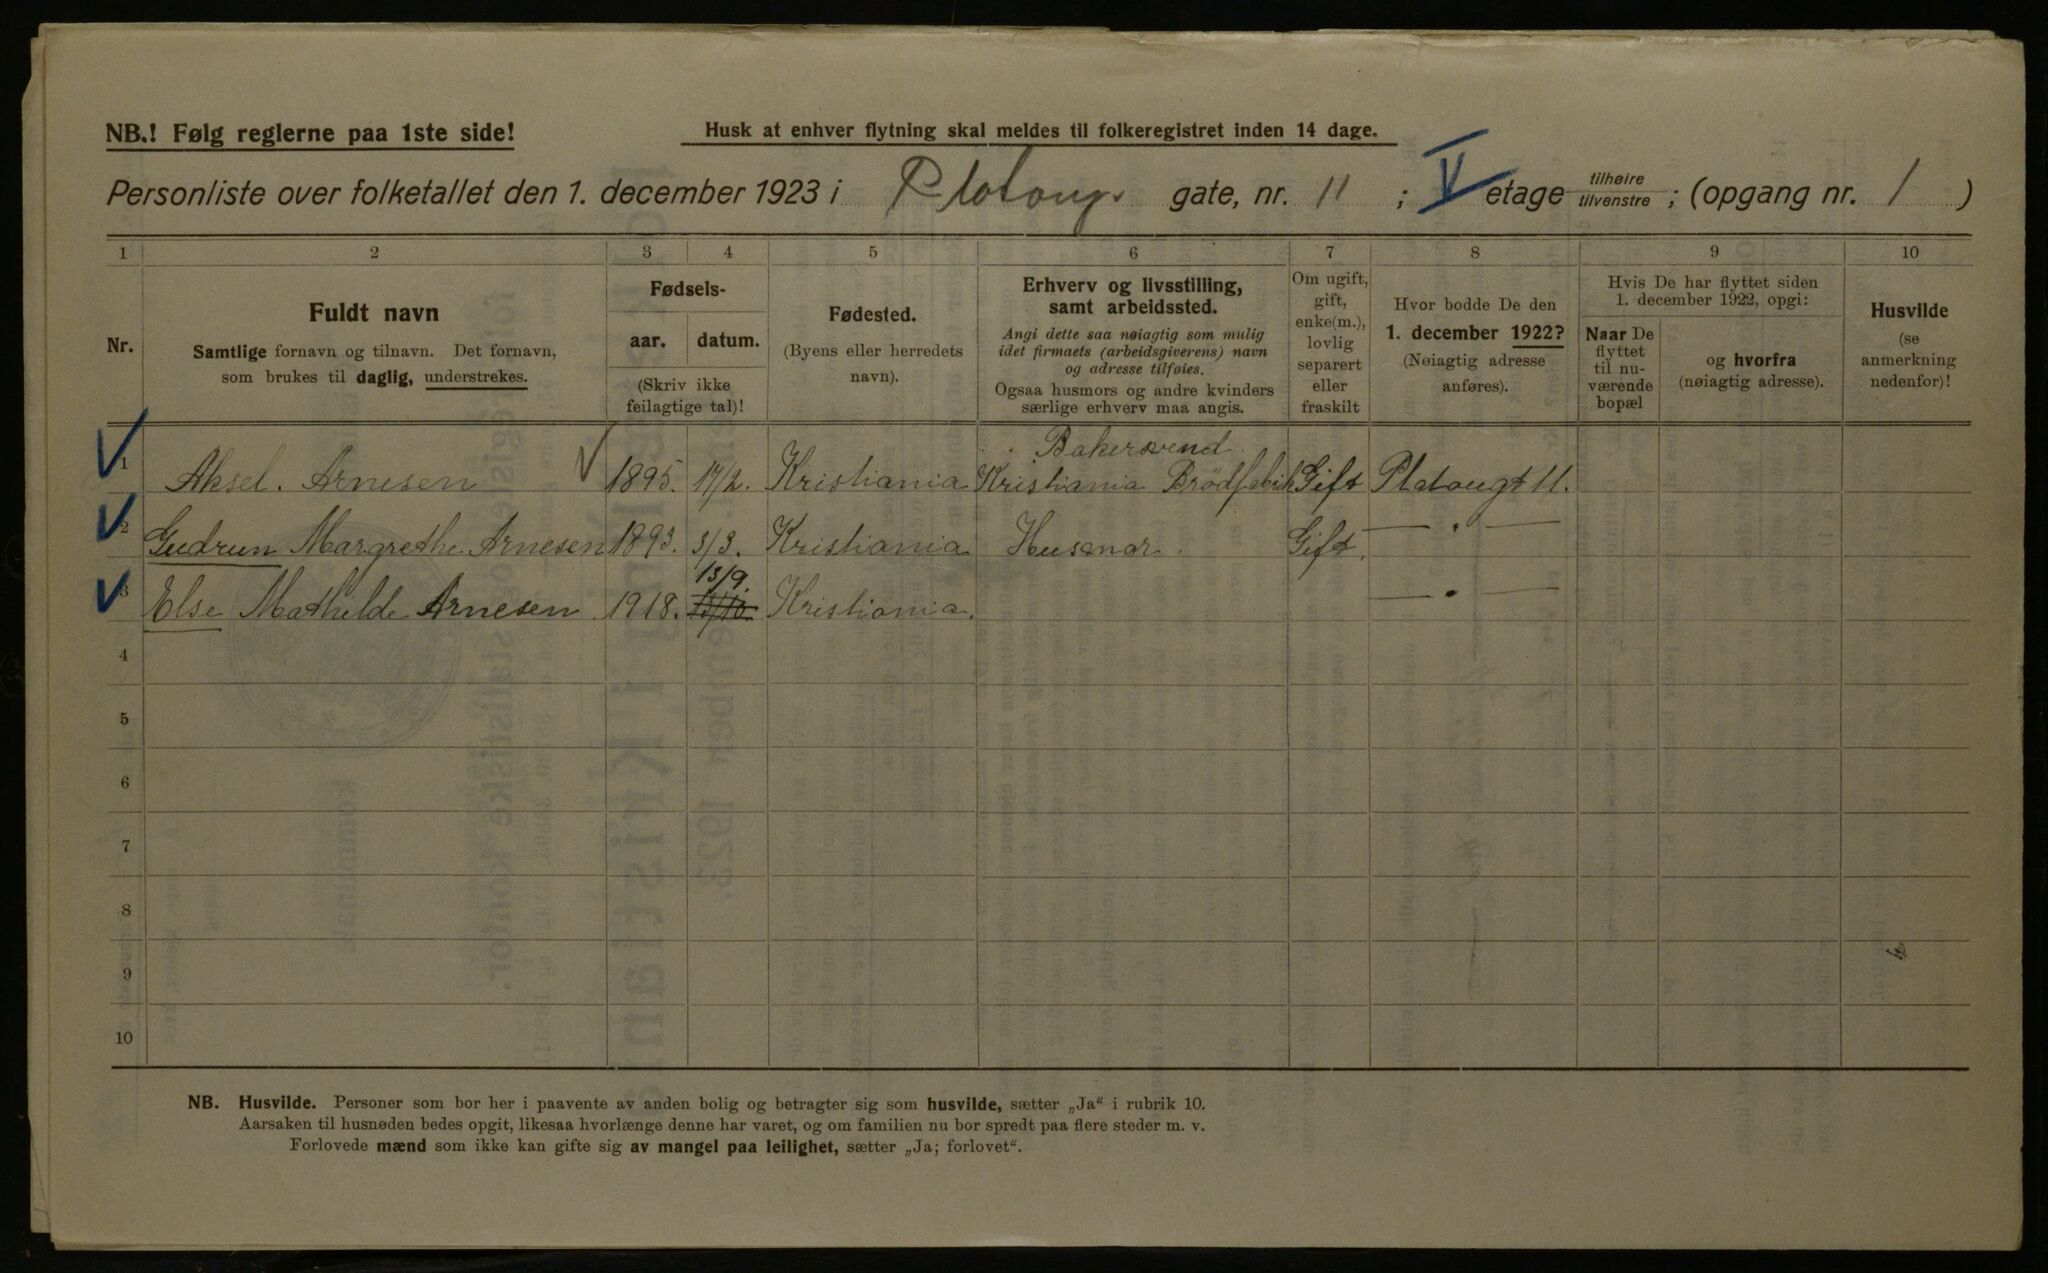 NB.! Følg reglerne paa 1ste side!
Husk at enhver flytning skal meldes til folkeregistret inden 14 dage.
Personliste over folketallet den 1. december 1923 i Platougs gate, nr. 11 ; V etage tilhøire tilvenstre ; (opgang nr. 1 )
1 2 3 4 5 6 7 8 9 10
Nr.
Fuldt navn
Samtlige fornavn og tilnavn. Det fornavn,
som brukes til daglig, understrekes.
Fødsels-
aar. datum.
(Skriv ikke
feilagtige tal)!
Fødested.
(Byens eller herredets
navn).
Erhverv og livsstilling,
samt arbeidssted.
Angi dette saa nøiagtig som mulig
idet firmaets (arbeidsgiverens) navn
og adresse tilføies.
Ogsaa husmors og andre kvinders
særlige erhverv maa angis.
Om ugift,
gift,
enke(m.),
lovlig
separert
eller
fraskilt
Hvor bodde De den
1. december 1922?
(Nøiagtig adresse
anføres).
Hvis De har flyttet siden
1. december 1922, opgi:
Naar De
flyttet
til nu-
værende
bopæl
og hvorfra
(nøiagtig adresse).
Husvilde
(se
anmerkning
nedenfor)!
Bakersvend
1 Aksel. Arnesen 1895. 17/2. Kristiania Kristiania Brödfabrik Gift Platougt 11.
2 Gudrun Margrethe Arnesen 1893. 3/3. Kristiania Husmor. Gift. — " —
13/9.
3 Else Mathilde Arnesen. 1918. 13/10 Kristiania. — " —
4
5
6
7
8
9
10
NB. Husvilde. Personer som bor her i paavente av anden bolig og betragter sig som husvilde, sætter „Ja“ i rubrik 10.
Aarsaken til husnøden bedes opgit, likesaa hvorlænge denne har varet, og om familien nu bor spredt paa flere steder m. v.
Forlovede mænd som ikke kan gifte sig av mangel paa leilighet, sætter „Ja; forlovet“.